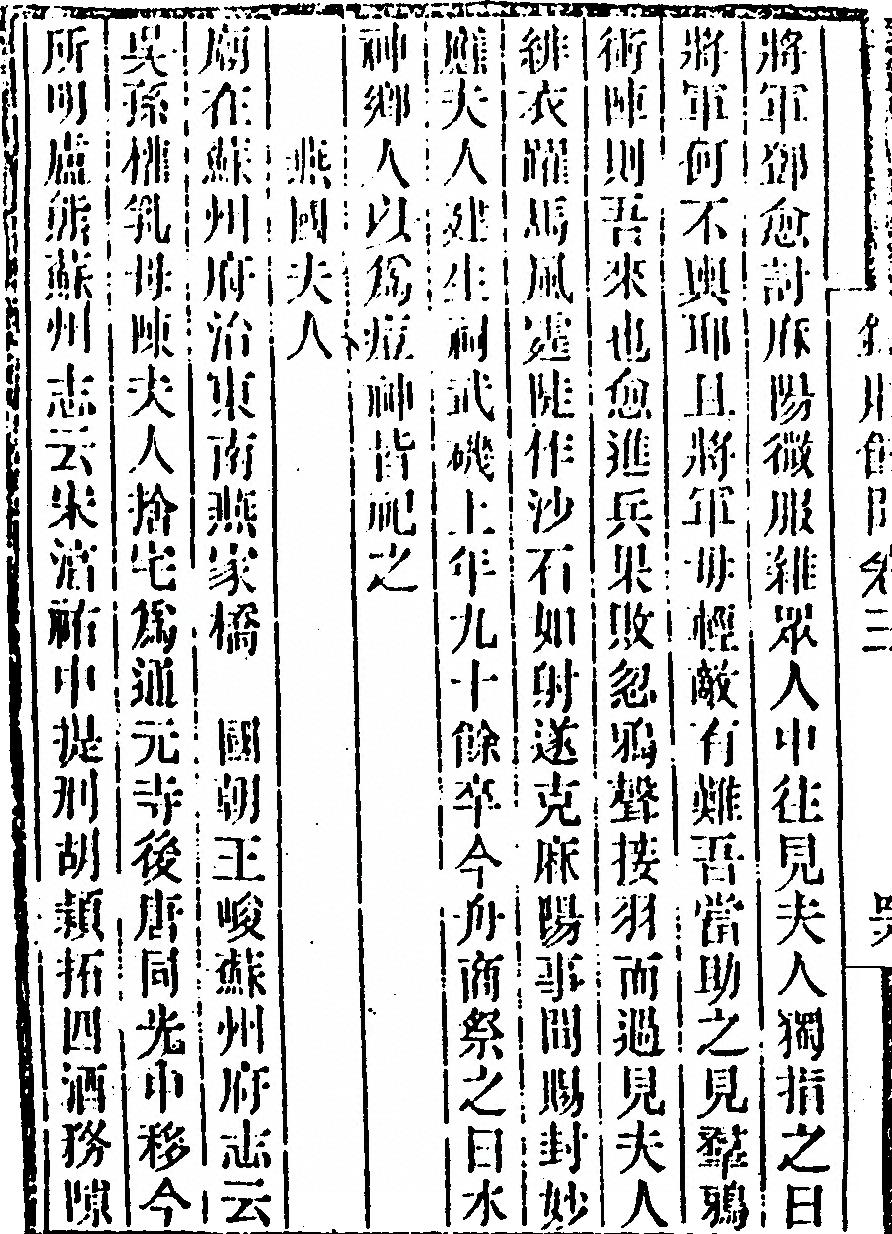 將軍鄧愈討麻陽微服雜眾人中往見夫人獨指之曰
將軍何不輿耶且將軍毋輕敵有難吾當助之見羣鴉
術陣則吾來也愈進兵果敗忽鴉聲接羽而過見夫人
緋衣躍馬風霆陡作沙石如射遂克麻陽事聞賜封妙
應夫人建生祠武磯上年九十餘卒今舟商祭之曰水
神鄉人以為痘神皆祀之
燕國夫人
廟在蘇州府治東南燕家橋　國朝王峻蘇州府志云
吳孫權乳母陳夫人捨宅為通元寺後唐同光中移今
所明盧熊蘇州志云宋淳祐中提刑胡穎拓四酒務隙
卷二